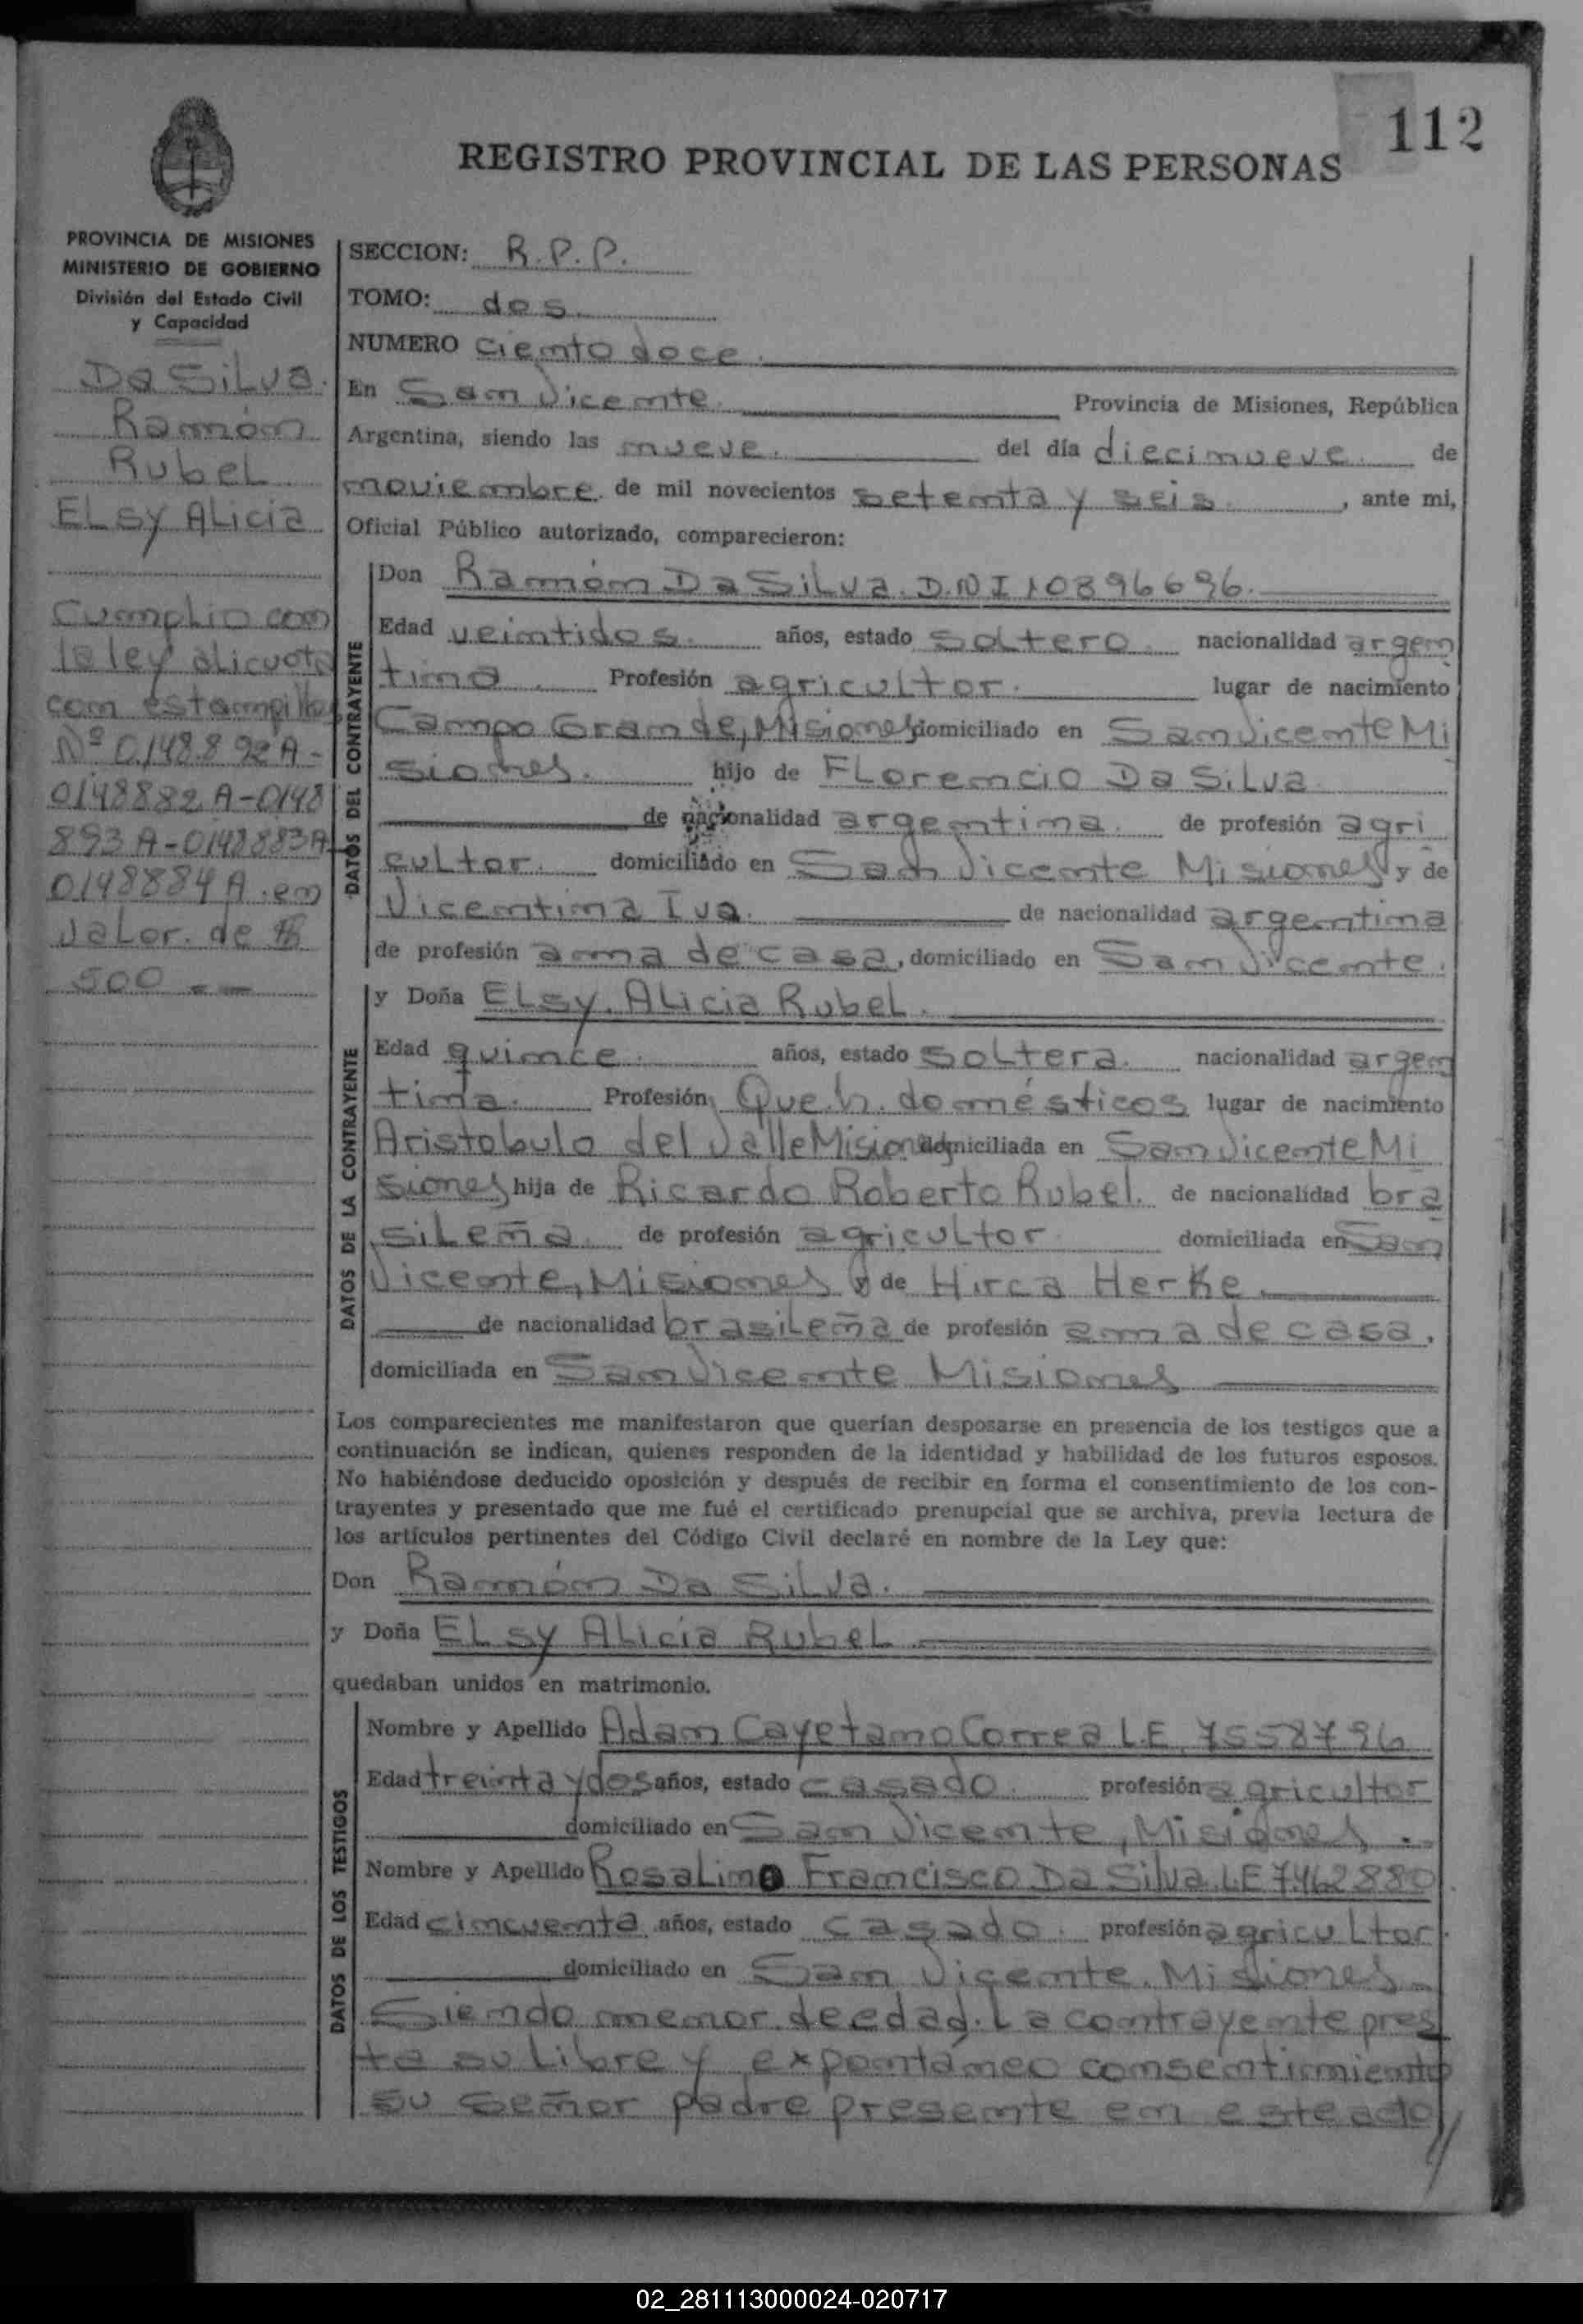 112
REGISTRO PROVINCIAL DE LAS PERSONAS
PROVINCIA DE MISIONES
MINISTERIO DE GOBIERNO
División del Estado Civil
y Capacidad
Da Silva.
Ramón
Rubel
Elsy Alicia
Cumplio con
la ley alicuota
con estampillas
Nº 0.148.892A-
0148882A-0148
893A-0148883A
0148884A.en
valor. de $
500 = =
SECCION: R.P.P.
TOMO: dos.
NUMERO ciento doce.
En San Vicente. Provincia de Misiones, República
Argentina, siendo las nueve. del día diecinueve. de
noviembre. de mil novecientos setenta y seis. , ante mi,
Oficial Público autorizado, comparecieron:
DATOS DEL CONTRAYENTE
Don Ramón Da Silva. D.N.I 10896696.
Edad veintidos. años, estado soltero. nacionalidad argen
tina. Profesión agricultor. lugar de nacimiento
Campo Grande, Misiones domiciliado en San Vicente Mi
siones. hijo de Florencio Da Silva.
de nacionalidad argentina. de profesión agri
cultor. domiciliado en San Vicente Misiones y de
Vicentina Iva. de nacionalidad argentina
de profesión ama de casa, domiciliado en San Vicente.
DATOS DE LA CONTRAYENTE
y Doña Elsy. Alicia Rubel.
Edad quince. años, estado soltera. nacionalidad argen
tina. Profesión Que.h. domésticos lugar de nacimiento
Aristobulo del Valle Misiones domiciliada en San Vicente Mi
siones hija de Ricardo Roberto Rubel. de nacionalidad bra
sileña. de profesión agricultor. domiciliada en San
Vicente, Misiones y de Hirca Herke.
de nacionalidad brasileña de profesión ama de casa.
domiciliada en San Vicente Misiones
Los comparecientes me manifestaron que querían desposarse en presencia de los testigos que a
continuación se indican, quienes responden de la identidad y habilidad de los futuros esposos.
No habiéndose deducido oposición y después de recibir en forma el consentimiento de los con-
trayentes y presentado que me fué el certificado prenupcial que se archiva, previa lectura de
los artículos pertinentes del Código Civil declaré en nombre de la Ley que:
Don Ramón Da Silva.
y Doña Elsy Alicia Rubel
quedaban unidos en matrimonio.
DATOS DE LOS TESTIGOS
Nombre y Apellido Adan Cayetano Correa L.E. 7558796
Edad treinta y dos años, estado casado. profesión agricultor
domiciliado en San Vicente, Misiones.
Nombre y Apellido Rosalino Francisco Da Silva. L.E 7.462880
Edad cincuenta años, estado casado. profesión agricultor.
domiciliado en San Vicente. Misiones
Siendo menor. de edad. La contrayente pres
ta su libre y expontáneo consentimiento
su señor padre presente en este acto//
02_281113000024-020717